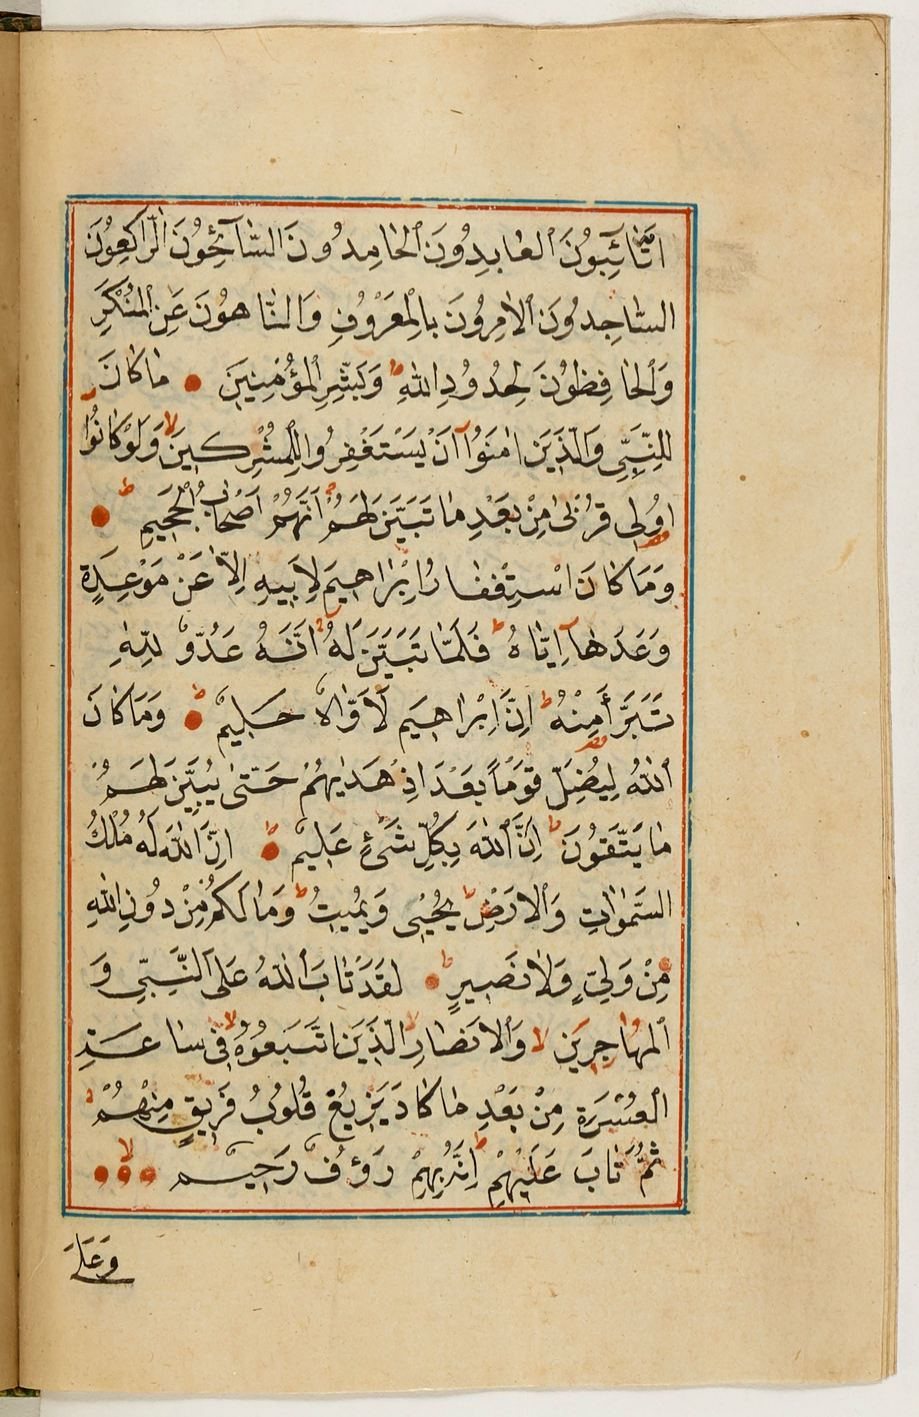 اَلتَّائِبُونَ الْعَابِدُونَ الْحَامِدُونَ السَّائِحُونَ الرَّاكِعُونَ
السَّاجِدُونَ الْاٰمِرُونَ بِالْمَعْرُوفِ وَالنَّاهُونَ عَنِ الْمُنْكَرِ
وَالْحَافِظُونَ لِحُدُودِ اللّٰهِ ط وَبَشِّرِ الْمُؤْمِنِينَ ● مَا كَانَ
لِلنَّبِيِّ وَالَّذِينَ اٰمَنُوا اَنْ يَسْتَغْفِرُوا لِلْمُشْرِكِينَ لا وَلَوْ كَانُوا
اُولِى قُرْبٰى مِنْ بَعْدِ مَا تَبَيَّنَ لَهُمْ اَنَّهُمْ اَصْحَابُ الْجَحِيمِ ط ●
وَمَا كَانَ اسْتِغْفَارُ اِبْرَاهِيمَ لِاَبِيهِ اِلَّا عَنْ مَوْعِدَةٍ
وَعَدَهَا اِيَّاهُ ط فَلَمَّا تَبَيَّنَ لَهُ اَنَّهُ عَدُوٌّ لِلّٰهِ
تَبَرَّأَ مِنْهُ ط اِنَّ اِبْرَاهِيمَ لَاَوَّاهٌ حَلِيمٌ ط ● وَمَا كَانَ
اللّٰهُ لِيُضِلَّ قَوْمًا بَعْدَ اِذْ هَدٰيهُمْ حَتّٰى يُبَيِّنَ لَهُمْ
مَا يَتَّقُونَ ط اِنَّ اللّٰهَ بِكُلِّ شَىْءٍ عَلِيمٌ ط ● اِنَّ اللّٰهَ لَهُ مُلْكُ
السَّمٰوَاتِ وَالْاَرْضِ ط يُحْيِى وَيُمِيتُ ط وَمَا لَكُمْ مِنْ دُونِ اللّٰهِ
مِنْ وَلِىٍّ وَلَا نَصِيرٍ ط ● لَقَدْ تَابَ اللّٰهُ عَلَى النَّبِيِّ وَ
الْمُهَاجِرِينَ لا وَالْاَنْصَارِ لا الَّذِينَ اتَّبَعُوهُ لا فِى سَاعَةِ
الْعُسْرَةِ مِنْ بَعْدِ مَا كَادَ يَزِيغُ قُلُوبُ فَرِيقٍ مِنْهُمْ
ثُمَّ تَابَ عَلَيْهِمْ ط اِنَّهُ بِهِمْ رَؤُفٌ رَحِيمٌ لا ● ● ●
وَعَلَى